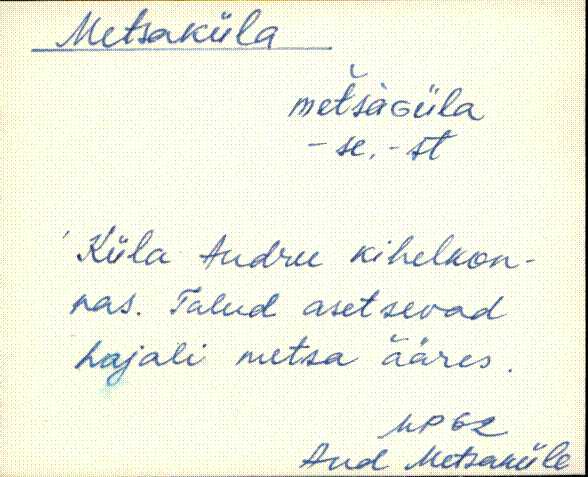 Metsaküla
metsàGüla
-se, -st
'Küla Audru kihelkon-
nas. Talud asetsevad
hajali metsa ääres.
MP62
Aud Metsaküla